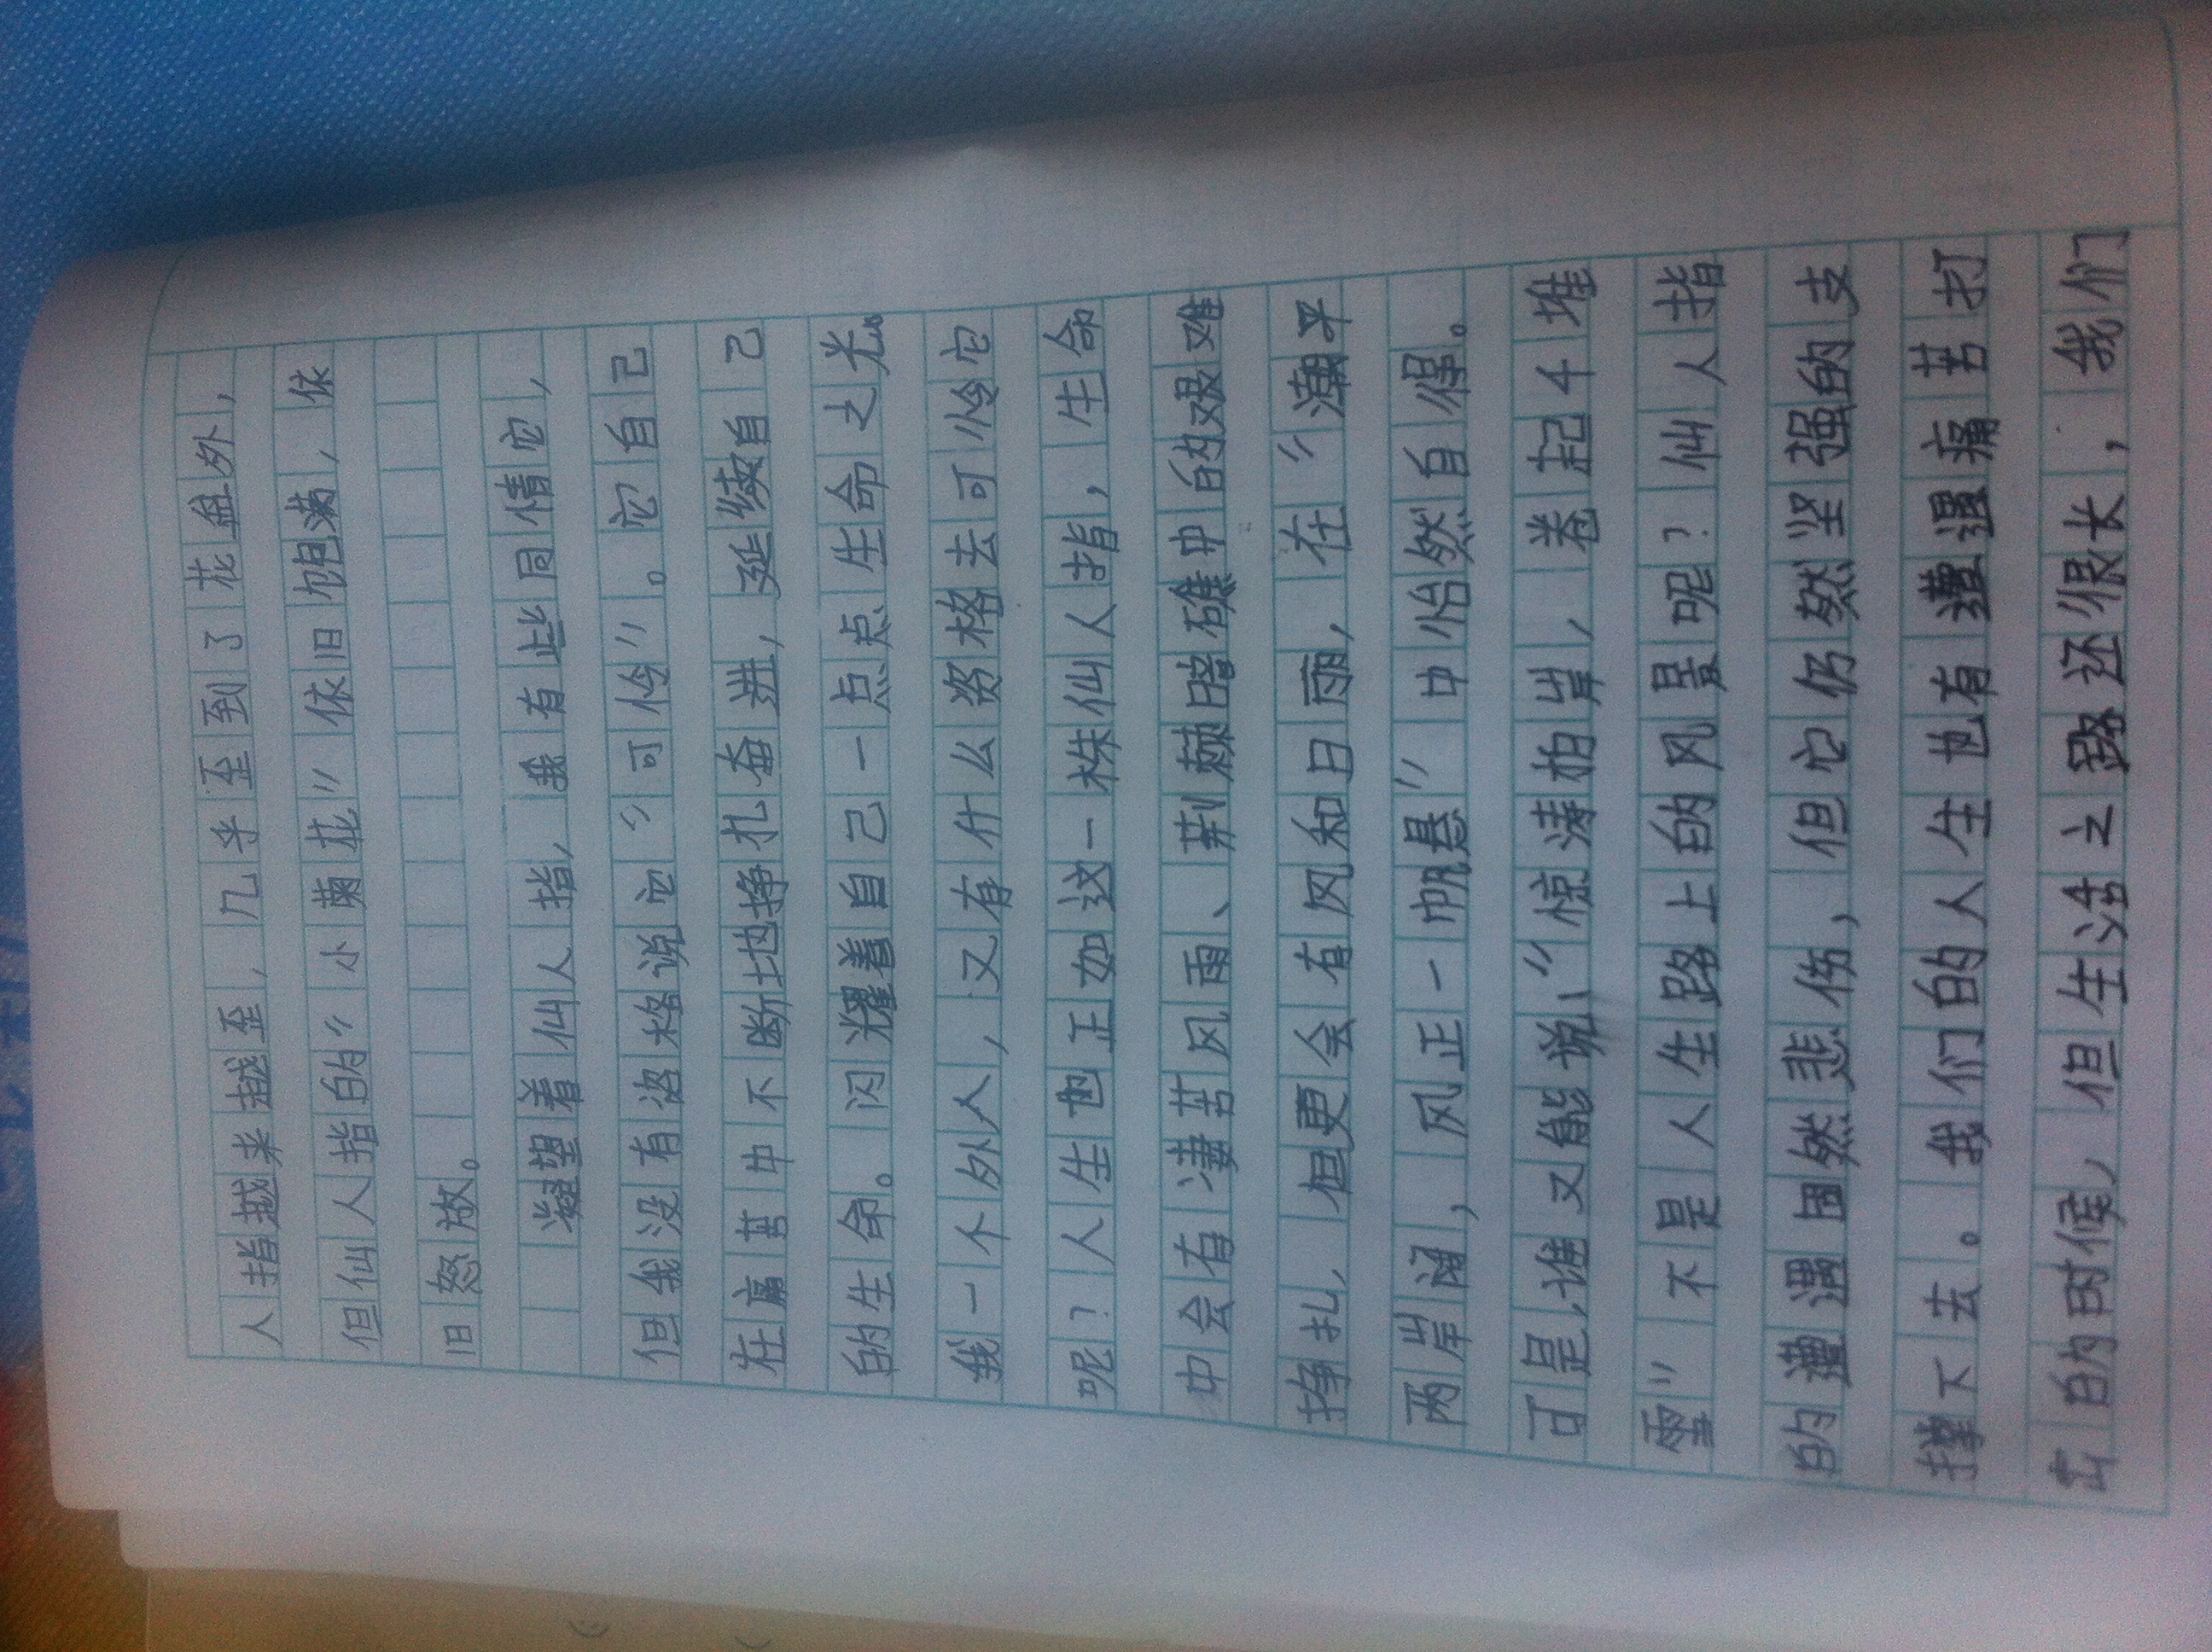 人指越来越歪，几乎歪到了花盆外，
但仙人指的“小菊花”依旧饱满，依
旧怒放。
凝望着仙人指，我有些同情它，
但我没有资格说它“可怜”。它自己
在痛苦中不断地挣扎奋进，延续自己
的生命。闪耀着自己一点点生命之光。
我一个外人，又有什么资格去可怜它
呢？人生也正如这一株仙人指，生命
中会有凄苦风雨、荆棘暗礁中的艰难
挣扎，但更会有风和日丽，在“潮平
两岸阔，风正一帆悬”中怡然自得。
可是，谁又能说，“惊涛拍岸，卷起千堆
雪”不是人生路上的风景呢？仙人指
的遭遇固然悲伤，但它仍然坚强的支
撑下去。我们的人生也有遭遇痛苦打
击的时候，但生活之路还很长，我们